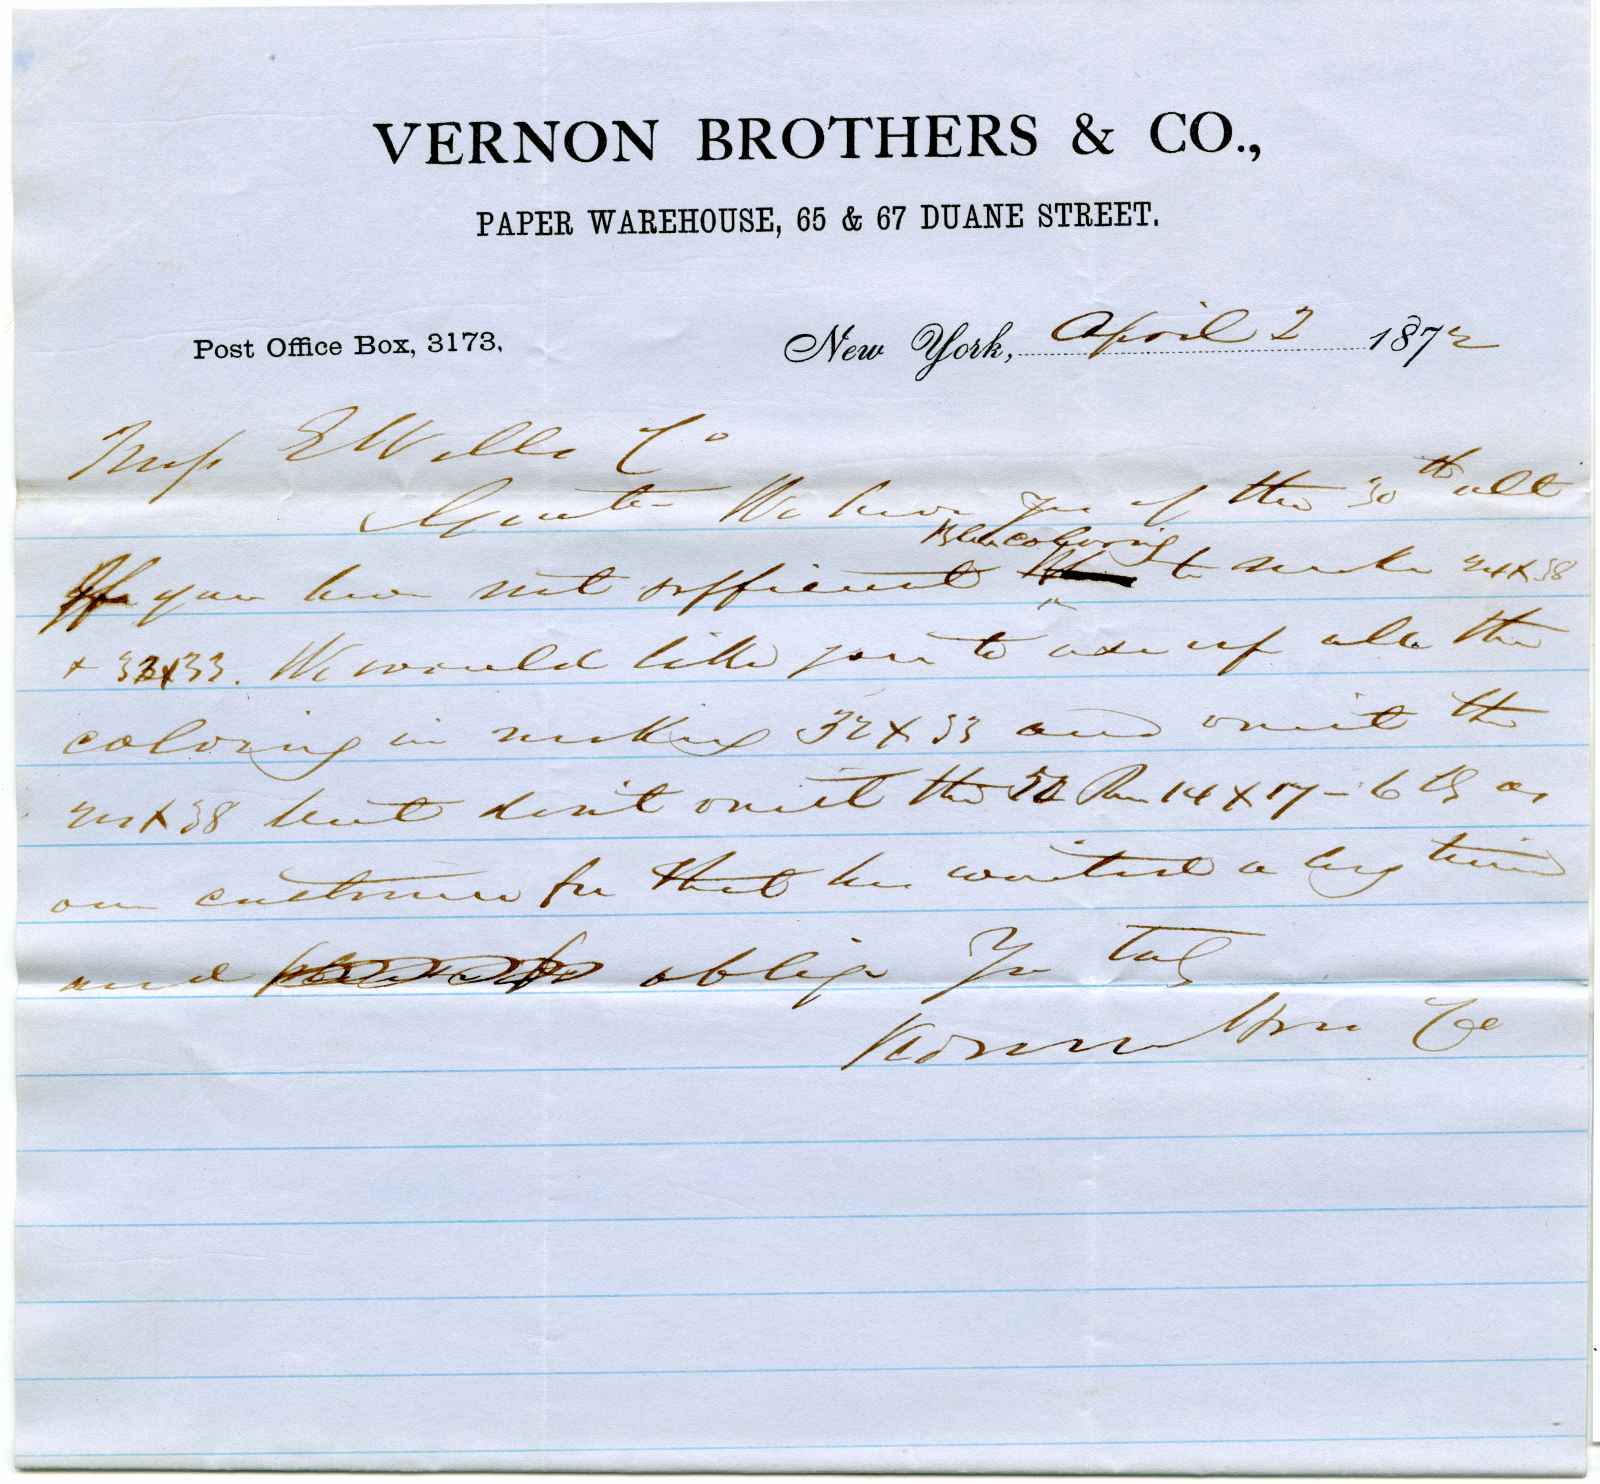 VERNON BROTHERS & CO.,
PAPER WAREHOUSE, 65 & 67 DUANE STREET.
Post Office Box, 3173.
New York, April 2 1872
Mess E Wells Co
Gents We have yrs of the 30th ult
Blue coloring
If you have not sufficient to make 24x38
+ 32x33. We would like you to use up all the
coloring in making 32x33 and omit the
24x38 but don't omit the 50 Rm 14x17-6 lb as
our customer for that has waited a long time
and oblige Yrs Taly
Vernon Bros & Co